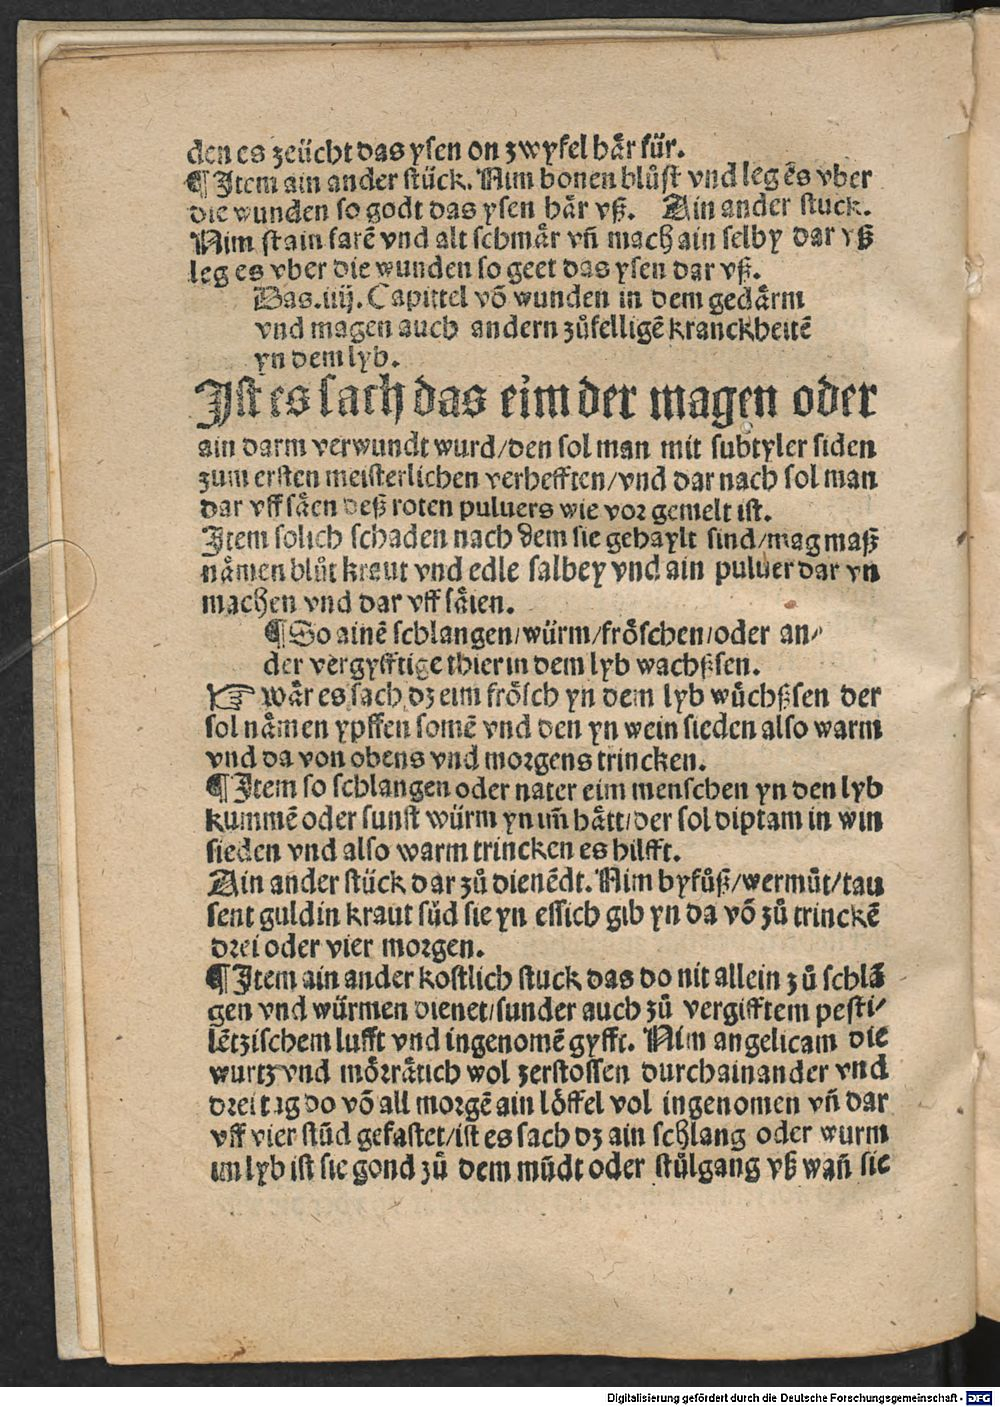 den es zeücht das ysen on zwyfel hår für.
¶ Item ain ander stück. Nim bonen blůst vnd leg ēs vber
die wunden so godt das ysen hår vß. Ain ander stuck.
Nim stain farē vnd alt schmår vñ mach ain selby dar vß
leg es vber die wunden so geet das ysen dar vß.
Das .iiij. Capittel võ wunden in dem gedårm
vnd magen auch andern zůfelligē kranckheitē
yn dem lyb.
Ist es sach das eim der magen oder
ain darm verwundt wurd/den sol man mit subtyler siden
zum ersten meisterlichen verhefften/vnd dar nach sol man
dar vff såen deß roten puluers wie vor gemelt ist.
Item solich schaden nach dem sie gehaylt sind/mag maß
nåmen blůt kraut vnd edle salbey vnd ain puluer dar vn
machen vnd dar vff såien.
¶ So ainē schlangen/würm/fröschen/oder an⸗
der vergyfftige thier in dem lyb wachßsen.
☞ wår es sach dz eim frösch yn dem lyb wůchßsen der
sol nåmen ypffen somē vnd den yn wein sieden also warm
vnd da von obens vnd morgens trincken.
¶ Item so schlangen oder nater eim menschen yn den lyb
kummē oder sunst würm yn im̄ hått/der sol diptam in win
sieden vnd also warm trincken es hilfft.
Ain ander stück dar zů dienēdt. Nim byfůß/wermůt/tau
sent guldin kraut sůd sie yn essich gib yn da võ zů trinckē
drei oder vier morgen.
¶ Item ain ander kostlich stuck das do nit allein zů schlā
gen vnd würmen dienet/sunder auch zů vergifftem pesti⸗
lētzischem lufft vnd ingenomē gyfft. Nim angelicam die
wurtz vnd mörråtich wol zerstossen durchainander vnd
drei tag do võ all morgē ain löffel vol ingenomen vñ dar
vff vier stūd gefastet/ist es sach dz ain schlang oder wurm
im lyb ist sie gond zů dem mūdt oder stůlgang vß wañ sie
Digitalisierung gefördert durch die Deutsche Forschungsgemeinschaft - DFG